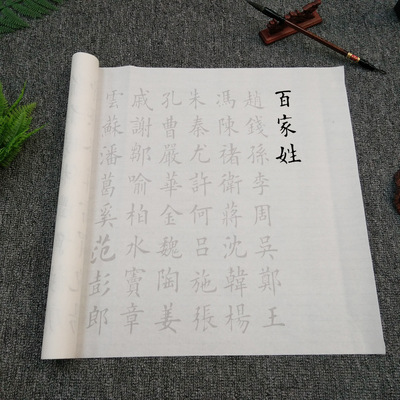 百家姓
趙錢孫李周吳鄭王
馮陳褚衛蔣沈韓楊
朱秦尤許何呂施張
孔曹嚴華金魏陶姜
戚謝鄒喻柏水竇章
雲蘇潘葛奚范彭郎